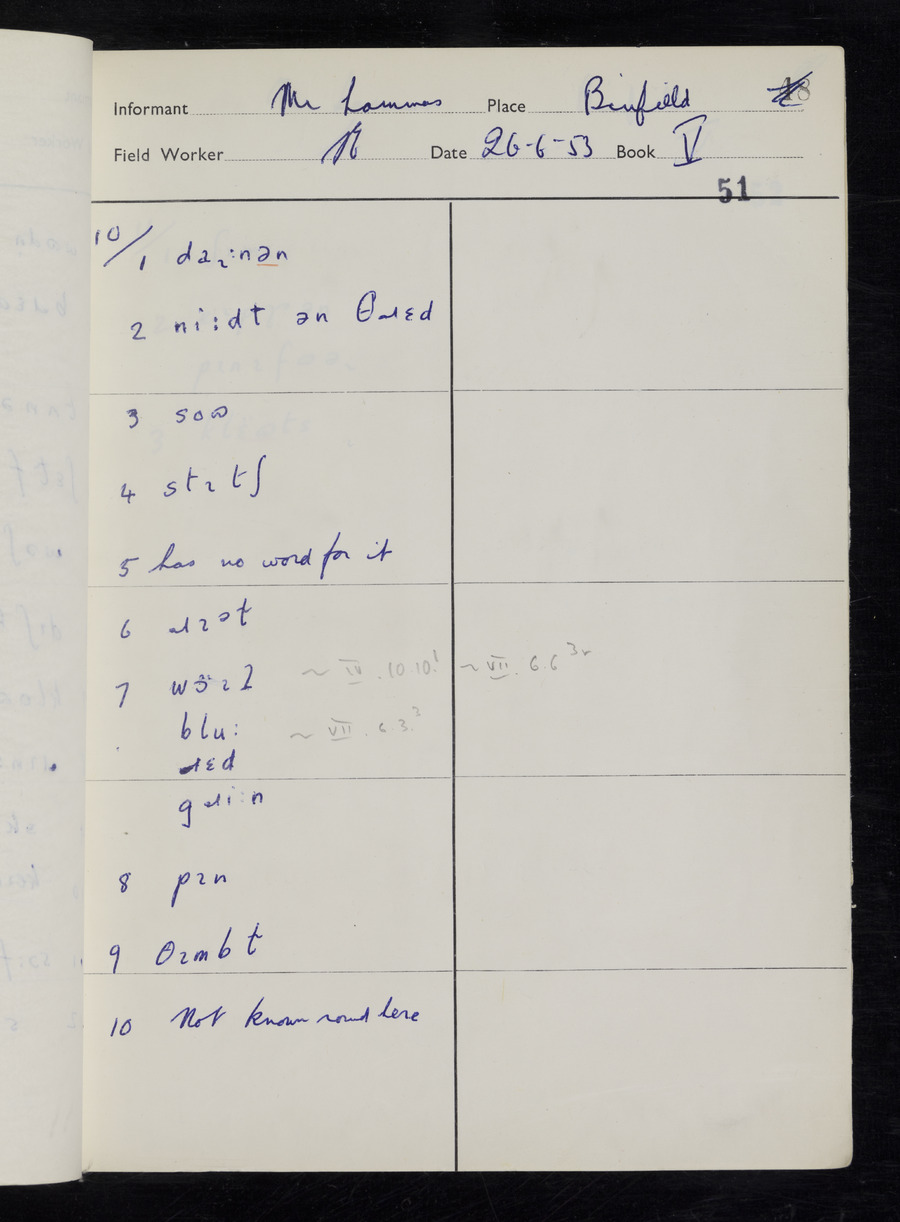 Informant Mr Lammas Place Binfield
Field Worker Date 26-6-53 Book V
51
10/1 daɪːnən
2 niːdɫ ən θɹɛd
3 soʊ
4 stɪtʃ
5 has no word for it
6 ɹɪət
7 wɜːɪɫ ~ IV.10.10.¹ ~ VII.6.6
bluː ~ VII.6.3.³
ɹɛd
gɹiːn
8 pɪn
9 θɪmbɫ
10 Not known round here